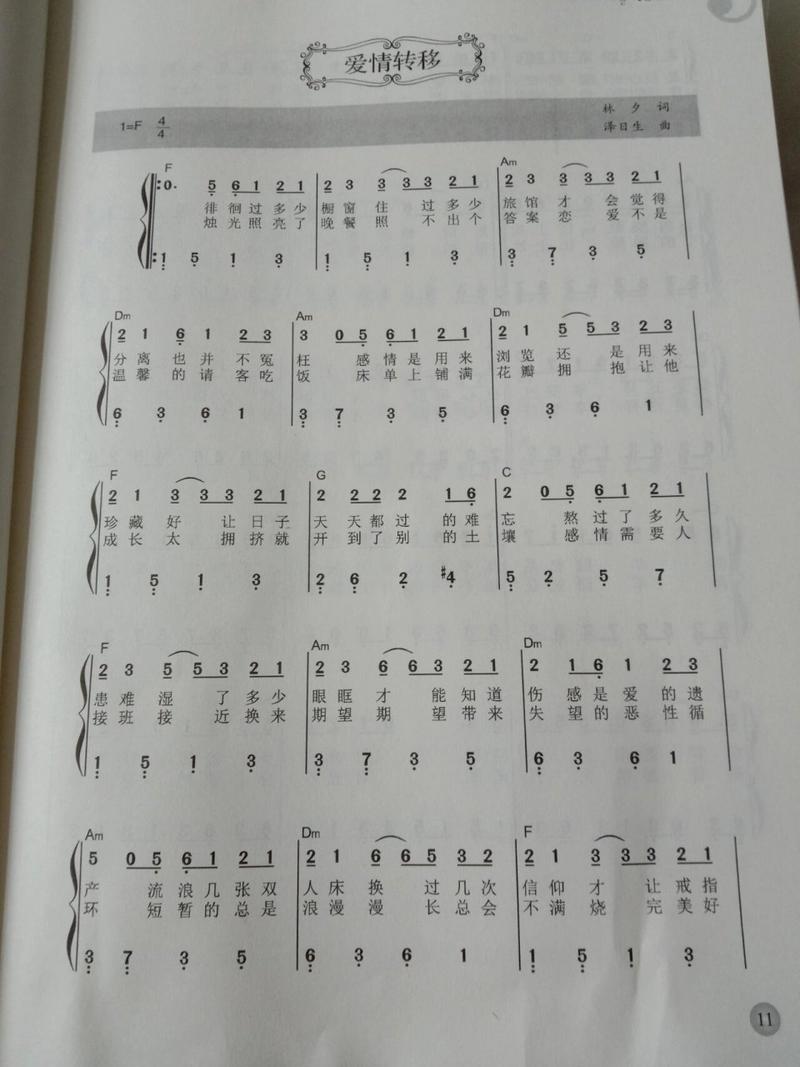 爱情转移
1=F 4/4
林 夕 词
泽日生 曲
F Am
0. 5 6 1 2 1 2 3 3 3 3 2 1 2 3 3 3 3 2 1
徘徊过多少 橱窗 住 过多少 旅馆才 会觉得
烛光照亮了 晚餐 照 不出个 答案恋 爱不是
1 5 1 3 1 5 1 3 3 7 3 5
Dm Am Dm
2 1 6 1 2 3 3 0 5 6 1 2 1 2 1 5 5 3 2 3
分离也并不冤 枉 感情是用来 浏览还 是用来
温馨的请客吃 饭 床单上铺满 花瓣拥 抱让他
6 3 6 1 3 7 3 5 6 3 6 1
F G C
2 1 3 3 3 2 1 2 2 2 2 1 6 2 0 5 6 1 2 1
珍藏好 让日子 天天都过 的难 忘 熬过了多久
成长太 拥挤就 开到了别 的土 壤 感情需要人
1 5 1 3 2 6 2 #4 5 2 5 7
F Am Dm
2 3 5 5 3 2 1 2 3 6 6 3 2 1 2 1 6 1 2 3
患难湿 了多少 眼眶才 能知道 伤感是爱的遗
接班接 近换来 期望期 望带来 失望的恶性循
1 5 1 3 3 7 3 5 6 3 6 1
Am Dm F
5 0 5 6 1 2 1 2 1 6 6 5 3 2 2 1 3 3 3 2 1
产 流浪几张双 人床换 过几次 信仰才 让戒指
环 短暂的总是 浪漫漫 长总会 不满烧 完美好
3 7 3 5 6 3 6 1 1 5 1 3
11